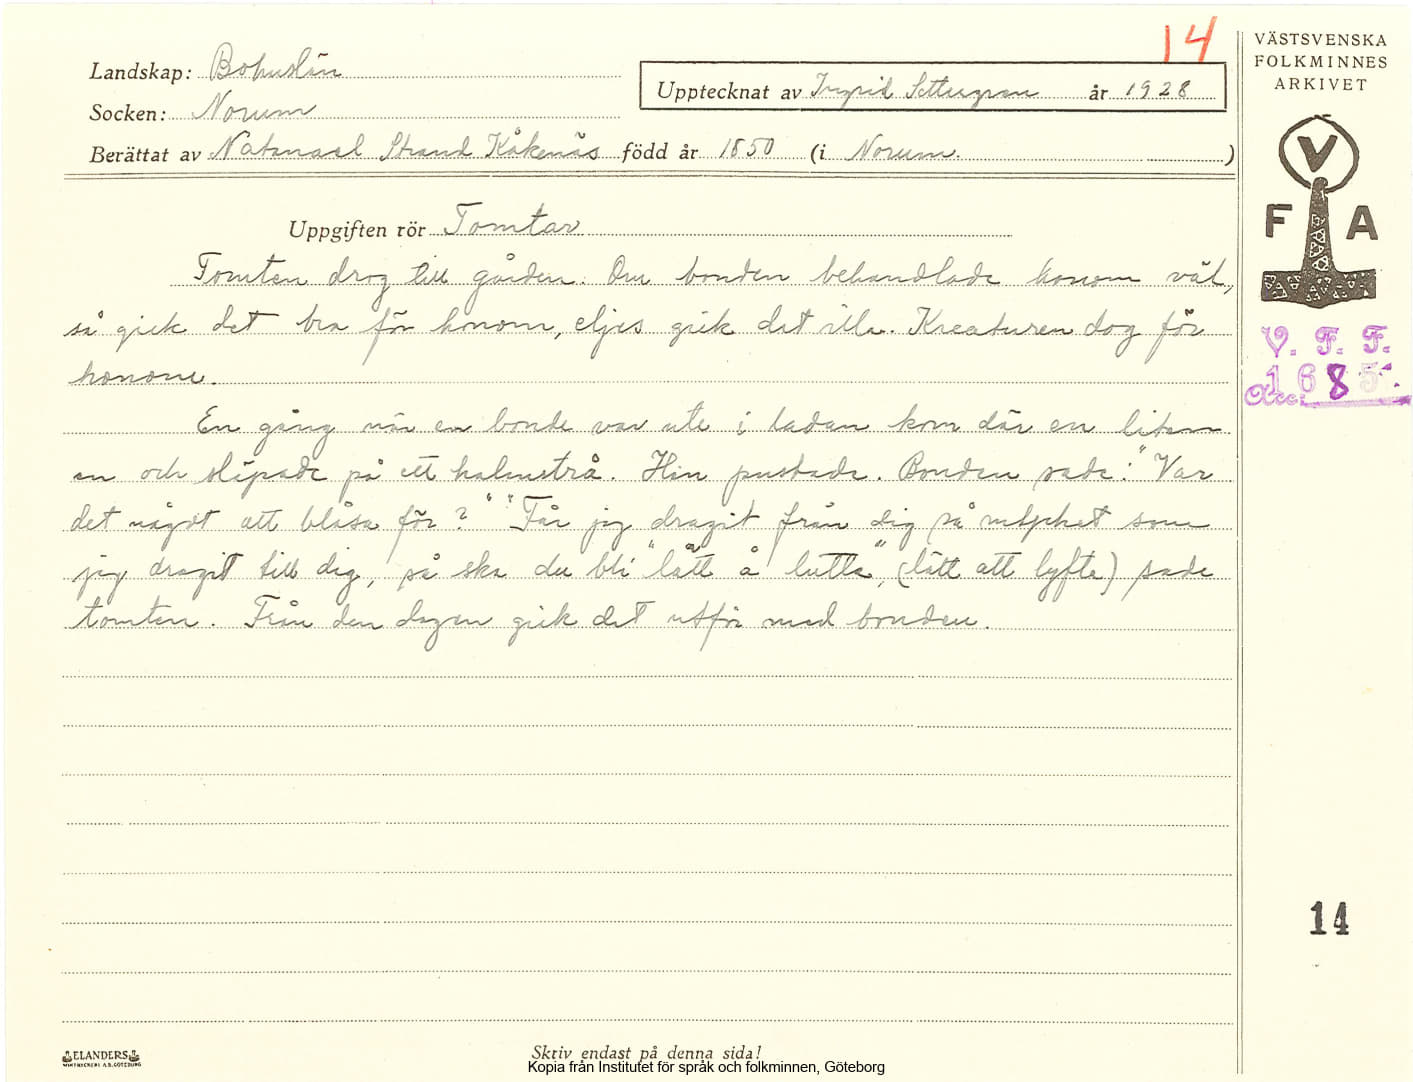 14
Landskap: Bohuslän
Socken: Norum
Upptecknat av Ingrid Settergren år 1928
Berättat av Natanael Strand Kåkenäs född år 1850 (i Norum. )
VÄSTSVENSKA
FOLKMINNES
ARKIVET
V
F A
V. F. F.
Acc: 1685.
Uppgiften rör Tomtar
Tomten drog till gården. Om bonden behandlade honom väl,
så gick det bra för honom, eljes gick det illa. Kreaturen dog för
honom.
En gång när en bonde var ute i ladan kom där en liten
en och släpade på ett halmstrå. Han pustade. Bonden sade: "Var
det något att blåsa för?" "Får jag dragit från dig så mycket som
jag dragit till dig, så ska du bli "lätt å lutta", (lätt att lyfta) sade
tomten. Från den dagen gick det utför med bonden.
14
ELANDERS
Skriv endast på denna sida!
Kopia från Institutet för språk och folkminnen, Göteborg